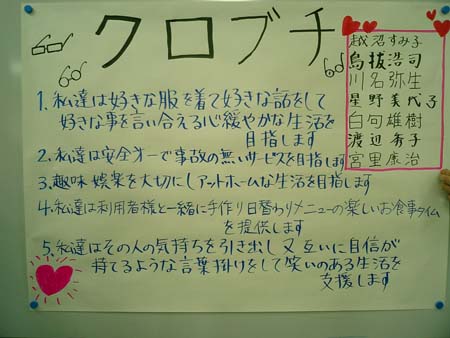 クロブチ
越沼すみ子
鳥抜浩司
川名弥生
星野美代子
白旬雄樹
渡辺寿子
宮里康治
1.私達は好きな服を着て好きな話をして
好きな事を言い合える心緩やかな生活を
目指します
2.私達は安全オーで事故の無いサービスを目指します
3.趣味娯楽を大切にしアットホームな生活を目指します
4.私達は利用者様と一緒に手作り日替わりメニューの楽しいお食事タイム
を提供します
5.私達はその人の気持ちを引き出し又互いに自信が
持てるような言葉掛けをして笑いのある生活を
支援します